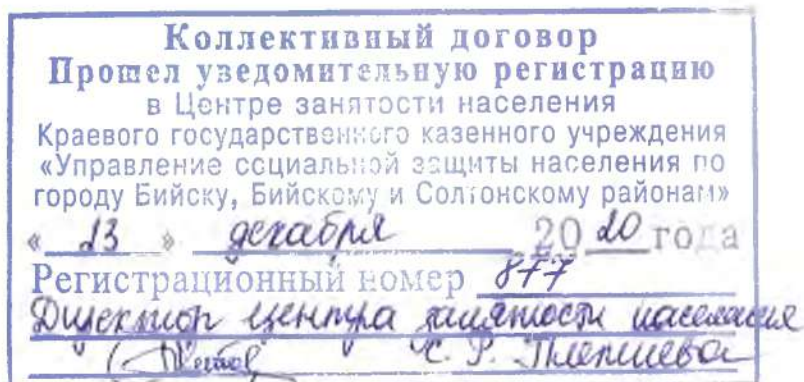 Коллективный договор
Прошел уведомительную регистрацию
в Центре занятости населения
Краевого государственного казенного учреждения
«Управление социальной защиты населения по
городу Бийску, Бийскому и Солтонскому районам»
« 23 » декабря 20 20 года
Регистрационный номер 877
Директор центра занятости населения